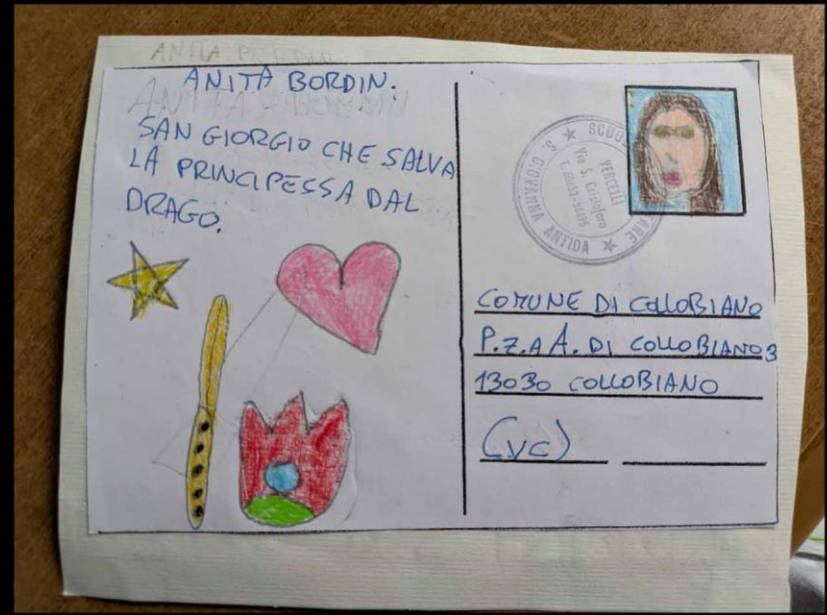 ANITA BORDIN
ANITA BORDIN
ANITA BORDIN.
SAN GIORGIO CHE SALVA
LA PRINCIPESSA DAL
DRAGO.
S. GIOVANNA ANTIDA ★ SCUOLA ★
VERCELLI
Via S. Cristoforo
COMUNE DI COLLOBIANO
P.Z.A A. DI COLLOBIANO 3
13030 COLLOBIANO
(VC)